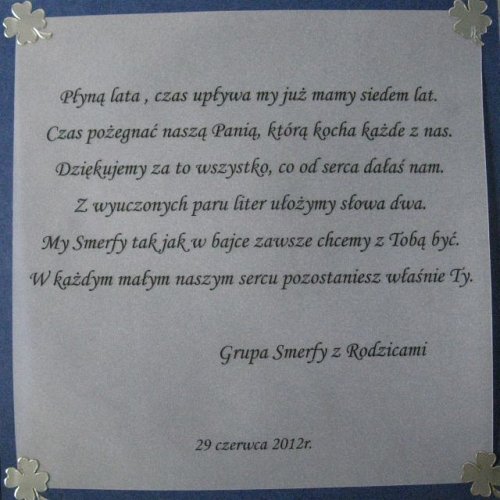 Płyną lata , czas upływa my już mamy siedem lat.
Czas pożegnać naszą Panią, którą kocha każde z nas.
Dziękujemy za to wszystko, co od serca dałaś nam.
Z wyuczonych paru liter ułożymy słowa dwa.
My Smerfy tak jak w bajce zawsze chcemy z Tobą być.
W każdym małym naszym sercu pozostaniesz właśnie Ty.
Grupa Smerfy z Rodzicami
29 czerwca 2012r.